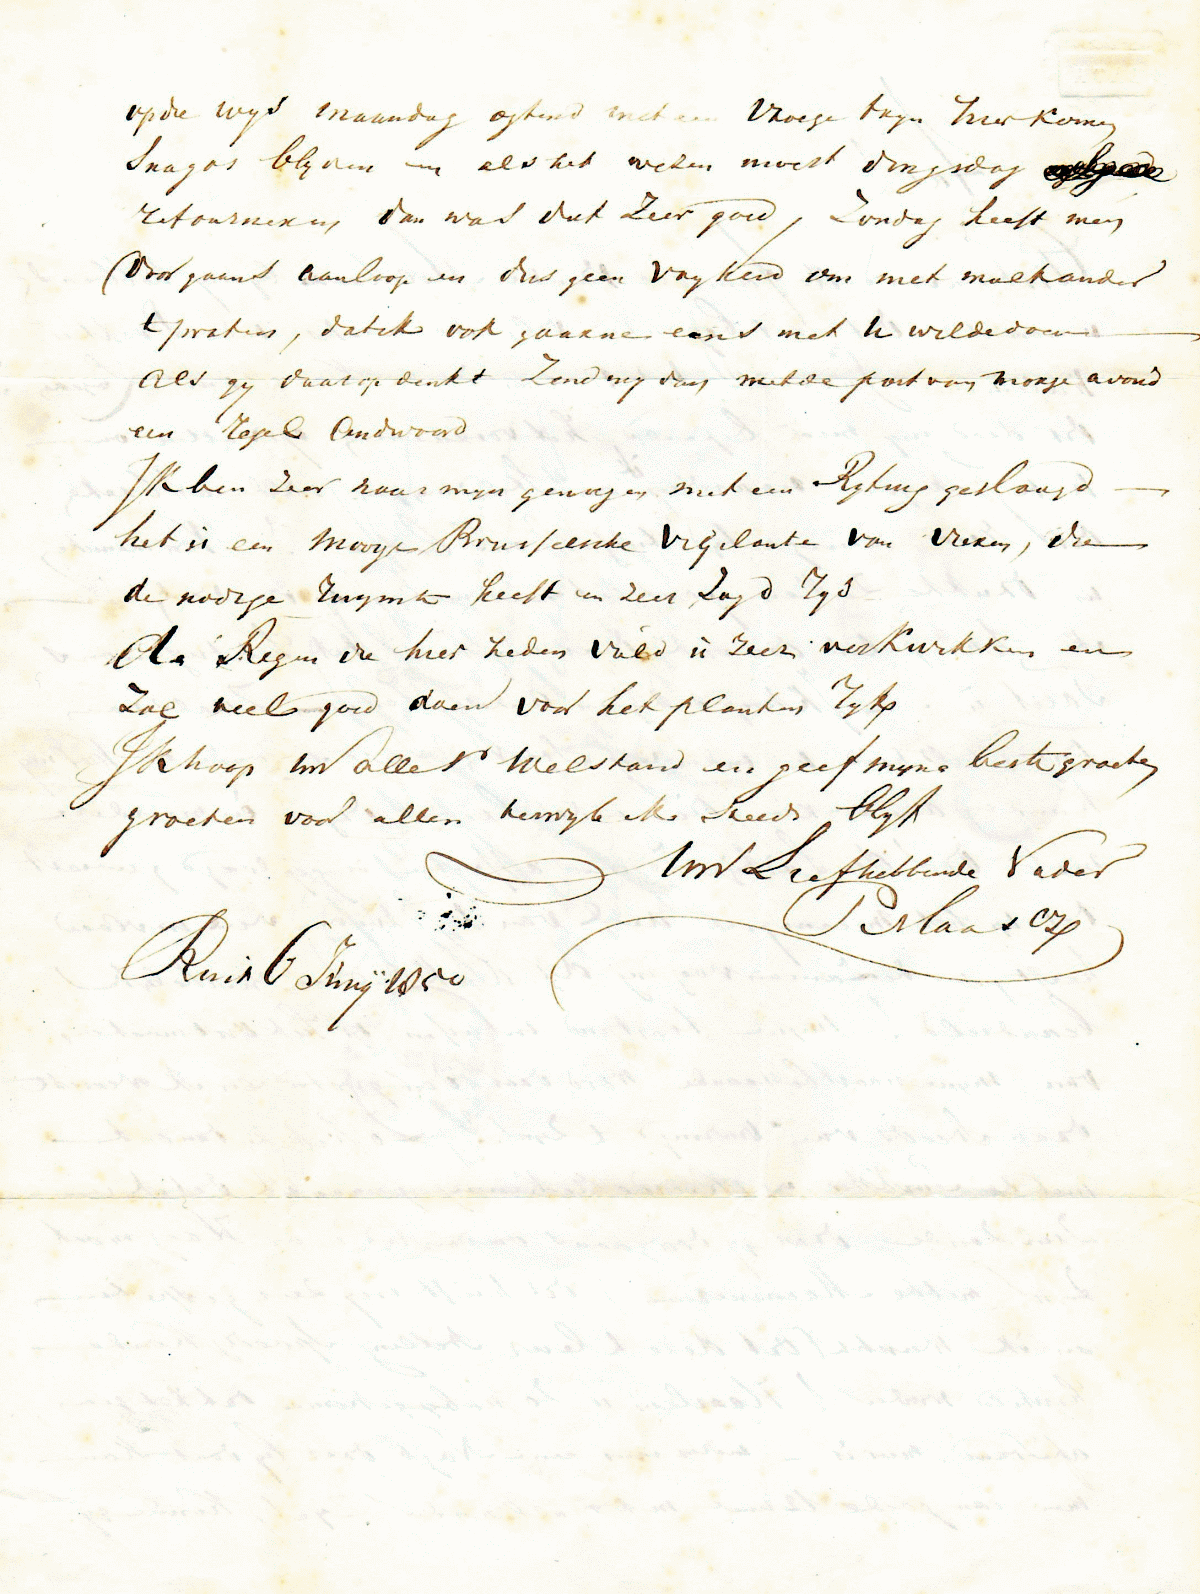 op die wys maandag ogtend met een vroege tryn hier komen
snagts blyven en als het wezen moest dingsdag
retourneren, dan was dat zeer goed, Zondag heeft men
door gaans aanloop en dus geen vryheid om met malkander
te praten, dat ik ook gaarne eens met U wilde doen
Als gy daar op denkt Zend my dan met de post van morge avond
een regel Andwoord
Ik ben zeer naar myn genoegen met een Rytuig geslaagd
het is een mooye Brusselsche Vigilante van vieren, die
de nodige ruymte heeft en zeer zagd ryd
De Regen die hier heden valt is zeer verkwikken en
Zal veel goed doen voor het planten ryk
Ik hoop uw aller Welstand en geef myne beste groeten
groeten voor allen terwyl ik steeds blyf
Uw Liefhebbende Vader
P Maas CZ
6 Juny 1850